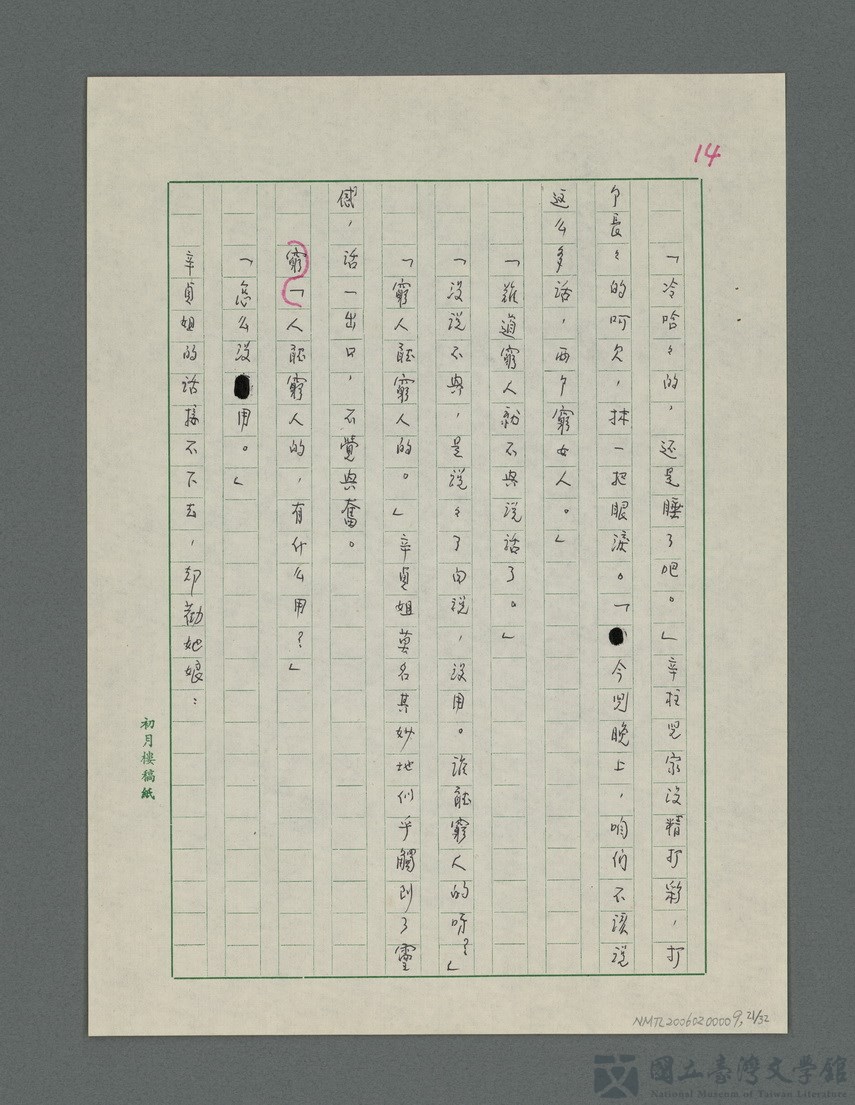 14
「冷哈々的，还是睡了吧。」辛柱兒家没精打彩，打
个長々的呵欠，抹一把眼淚。「今兒晚上，咱们不该说
这么多话，两个窮女人。」
「難道窮人就不興说話了。」
「没说不興，是说々了白说，没用。谁聽窮人的呀？」
「窮人聽窮人的。」辛貞姐莫名其妙地似乎觸到了靈
感，话一出口，不覺興奮。
窮「人聽窮人的，有什么用？」
「怎么没用。」
辛貞姐的话接不下去，却勸她娘：
初月樓稿紙
NMTL20060200009, 21/32
國立臺灣文學館
National Museum of Taiwan Literature